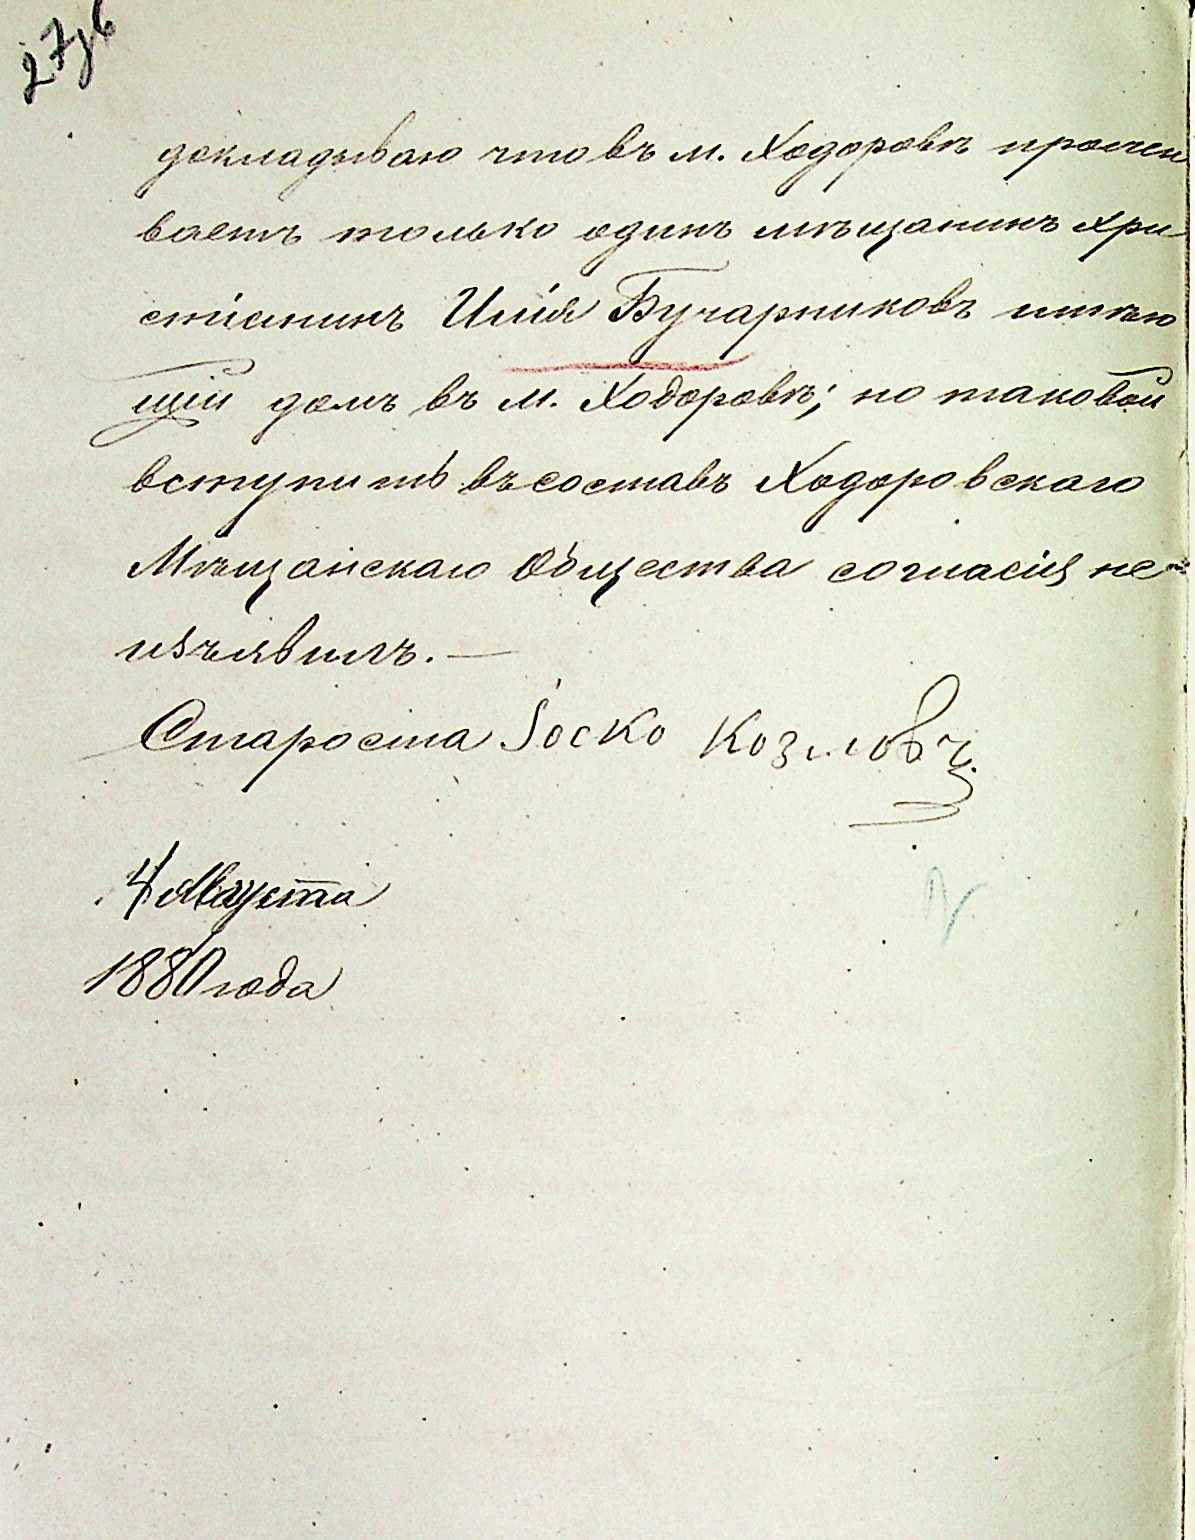 27 об
докладываю что въ м. Ходоровѣ прожи
ваетъ только одинъ мѣщанинъ Хри
стіанинъ Илія Бучарниковъ имѣю
щій домъ въ м. Ходоровѣ; но таковой
вступить въ составъ Ходоровскаго
Мѣщанскаго Общества согласія не
изъявилъ. —
Староста Іоско Козловъ.
4 Августа
1880 года